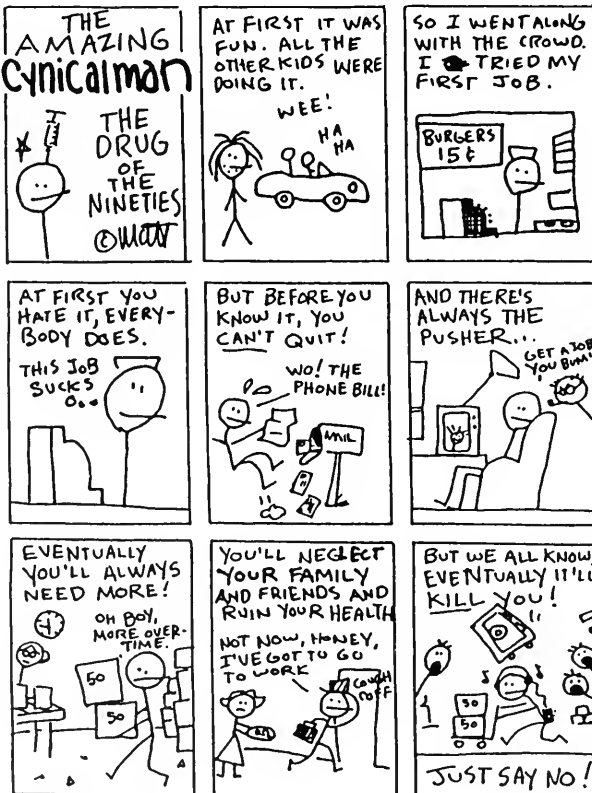 THE
AMAZING
Cynicalman
THE
DRUG
OF
THE
NINETIES
© MATT
AT FIRST IT WAS
FUN. ALL THE
OTHER KIDS WERE
DOING IT.
WEE!
HA
HA
SO I WENT ALONG
WITH THE CROWD.
I TRIED MY
FIRST JOB.
BURGERS
15¢
AT FIRST YOU
HATE IT, EVERY-
BODY DOES.
THIS JOB
SUCKS
BUT BEFORE YOU
KNOW IT, YOU
CAN'T QUIT!
WO! THE
PHONE BILL!
AND THERE'S
ALWAYS THE
PUSHER...
GET A JOB
YOU BUM!
EVENTUALLY
YOU'LL ALWAYS
NEED MORE!
OH BOY,
MORE OVER-
TIME.
50
50
YOU'LL NEGLECT
YOUR FAMILY
AND FRIENDS AND
RUIN YOUR HEALTH
NOT NOW, HONEY,
I'VE GOT TO GO
TO WORK
COUGH
COFF
BUT WE ALL KNOW,
EVENTUALLY IT'LL
KILL YOU!
50
50
JUST SAY NO!